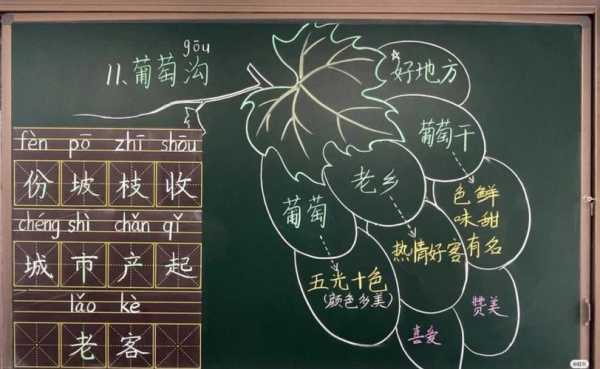 gōu
11.葡萄沟
fèn pō zhī shōu
份 坡 枝 收
chéng shì chǎn qǐ
城 市 产 起
lǎo kè
老 客
好地方
葡萄干
色鲜
味甜
有名
老乡
热情好客
葡萄
五光十色
(颜色多美)
喜爱
赞美